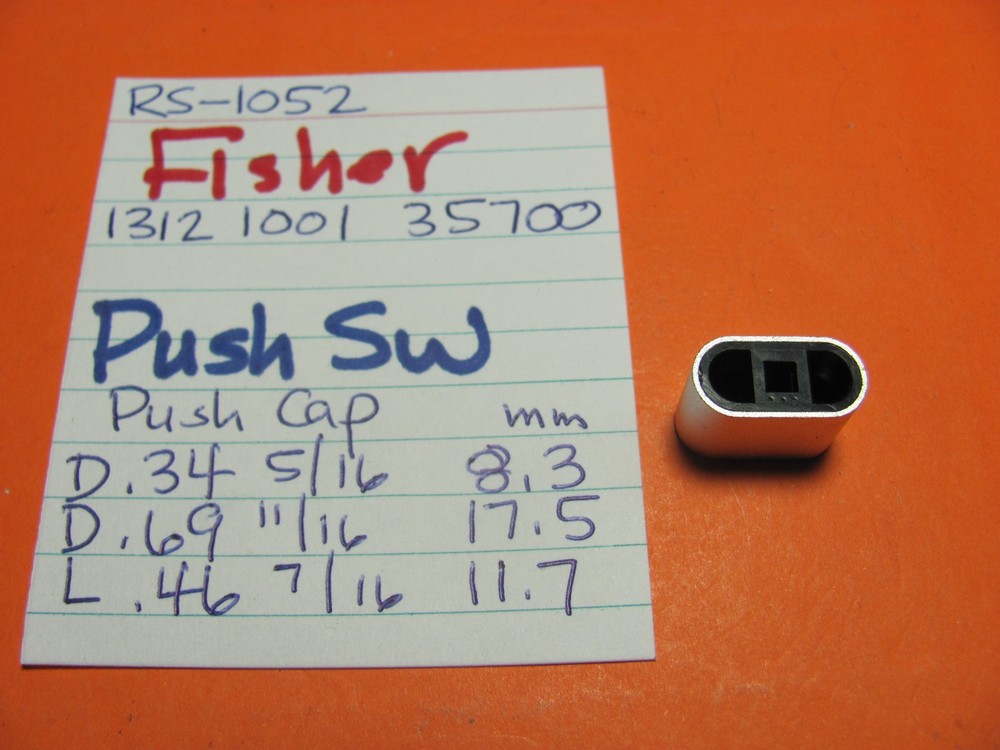 RS-1052
Fisher
1312 1001 35700
Push Sw
Push Cap mm
D .34 5/16 8.3
D .69 11/16 17.5
L .46 7/16 11.7